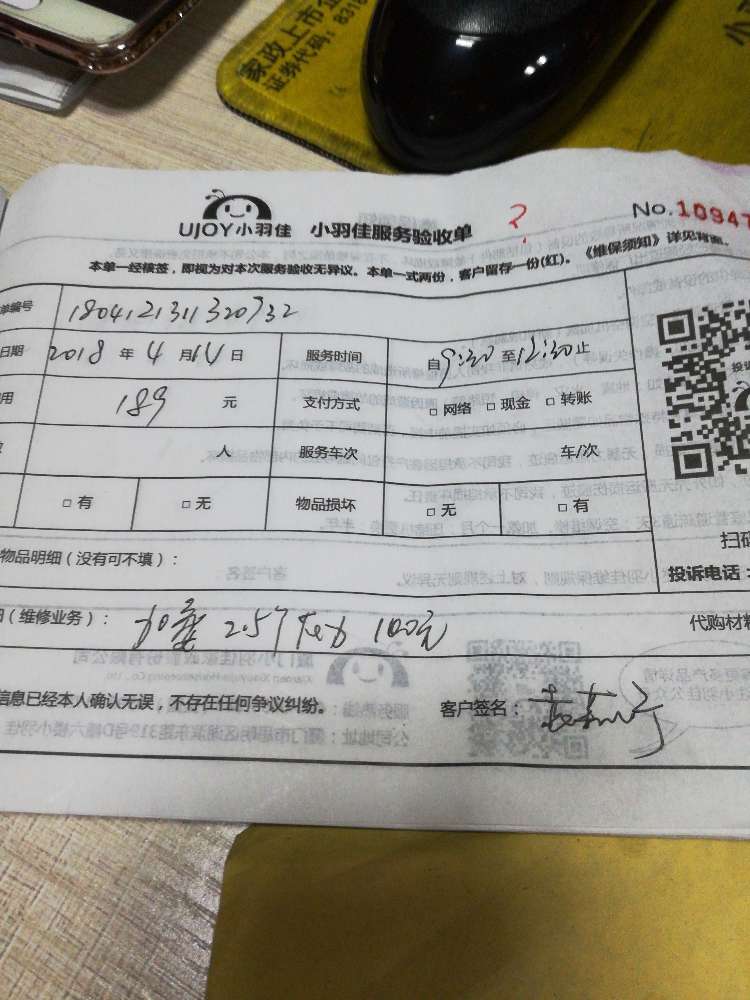 家政上市企
证券代码：8318
小羽
UJOY小羽佳 小羽佳服务验收单
?
No.10947
本单一经接签，即视为对本次服务验收无异议。本单一式两份，客户留存一份(红)。《维保须知》详见背面。
单编号 1804121311320932
日期 2018 年 4 月 14 日 服务时间 自9:30至12:30止
用 189 元 支付方式 □ 网络 □ 现金 □ 转账
人 服务车次 车/次
□ 有 □ 无 物品损坏 □ 无 □ 有
扫码
物品明细（没有可不填）：
投诉电话：
(维修业务)： 100元
代购材料
信息已经本人确认无误，不存在任何争议纠纷。 客户签名：